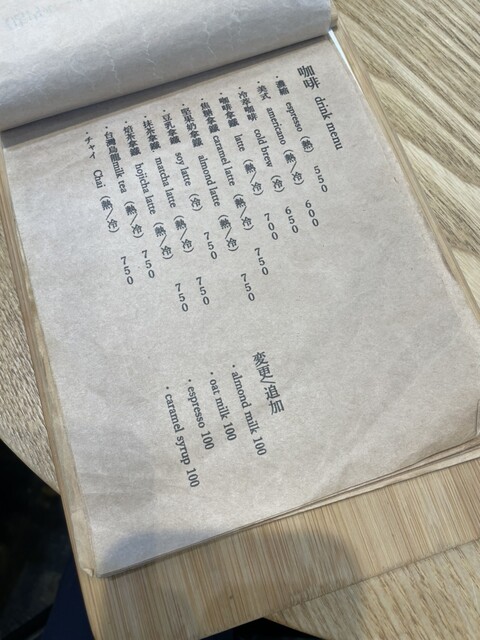 咖啡 drink menu
・濃縮 espresso (熱) 550
・美式 americano (熱/冷) 600
・冷萃咖啡 cold brew (冷) 650
・咖啡拿鐵 latte (熱/冷) 700
・焦糖拿鐵 caramel latte (熱/冷) 750
・堅果奶拿鐵 almond latte (熱/冷) 750
・豆乳拿鐵 soy latte (冷) 750
・抹茶拿鐵 matcha latte (熱/冷) 750
・焙茶拿鐵 hojicha latte (熱/冷) 750
・台灣烏龍milk tea (熱/冷) 750
・チャイ Chai (熱/冷) 750
変更/追加
・almond milk 100
・oat milk 100
・espresso 100
・caramel syrup 100